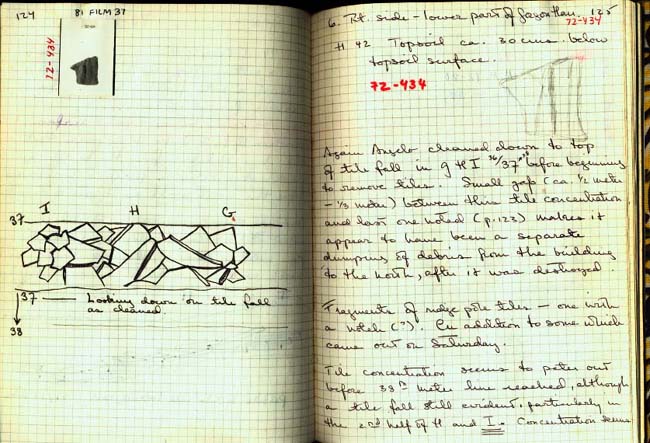 124
81 FILM 37
72-434
I H G
37
37 — Looking down on tile fall
as cleaned.
38
125
6. Rt. side - lower part of
72-434
H 42 Topsoil ca. 30 cms. below
topsoil surface.
72-434
Again Angelo cleaned down to top
of tile fall in g H I 36/37 before beginning
to remove tiles. Small gap (ca. ½ meter
- ⅓ meter) between this tile concentration
and last one noted (p. 123) makes it
appear to have been a separate
dumping of debris from the building
to the north, after it was destroyed.
Fragments of ridge pole tiles — one with
a notch (?). In addition to some which
came out on Saturday.
Tile concentration seems to peter out
before 38th meter line reached, although
a tile fall still evident, particularly in
the 2nd half of H and I. Concentration seems